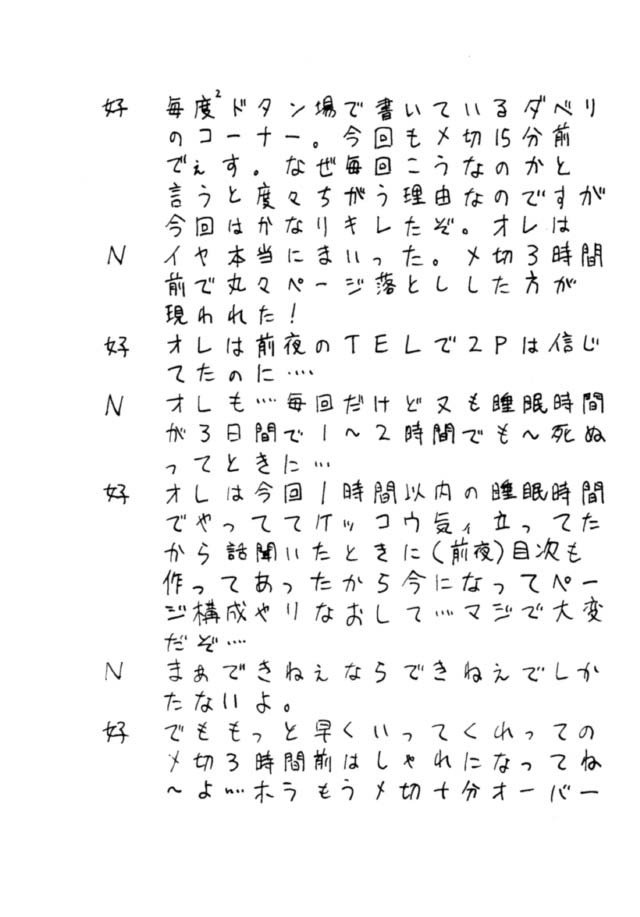 好 毎度²ドタン場で書いているダベリ
のコーナー。今回も〆切15分前
でぇす。なぜ毎回こうなのかと
言うと度々ちがう理由なのですが
今回はかなりキレたぞ。オレは
N イヤ本当にまいった。〆切3時間
前で丸々ページ落とししした方が
現われた!
好 オレは前夜のTELで2Pは信じ
てたのに‥‥
N オレも…毎回だけど又も睡眠時間
が3日間で1~2時間でも~死ぬ
ってときに…
好 オレは今回1時間以内の睡眠時間
でやっててケッコウ気ィ立ってた
から話聞いたときに(前夜)目次も
作ってあったから今になってペー
ジ構成やりなおして…マジで大変
だぞ‥‥
N まぁできねぇならできねぇでしか
たないよ。
好 でももっと早くいってくれっての
〆切3時間前はしゃれになってね
~よ‥‥ホラもう〆切十分オーバー